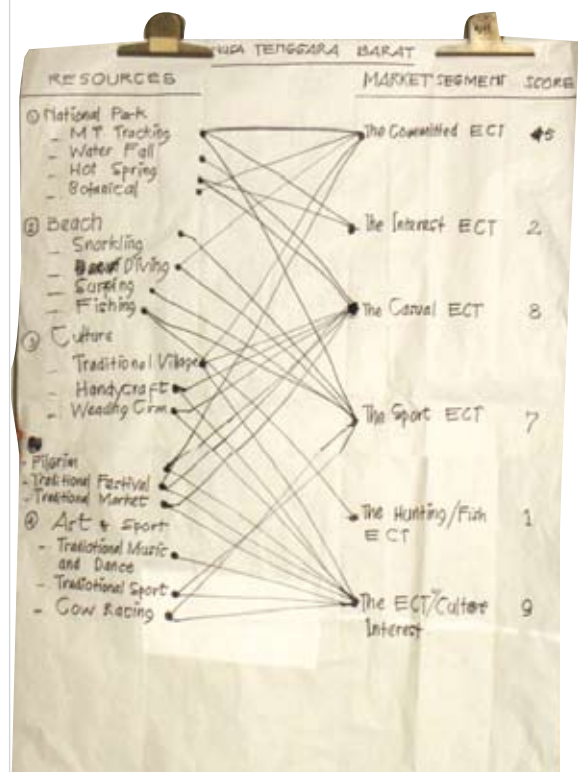 NUSA TENGGARA BARAT
RESOURCES
① National Park
- MT Tracking
- Water Fall
- Hot Spring
- Botanical
② Beach
- Snorkling
- Diving
- Surping
- Fishing
③ Culture
- Traditional Village
- Handycraft
- Weading Crm
- Pilgrim
- Traditional Festival
- Traditional Market
④ Art & Sport
- Traditional Music
and Dance
- Tradiotional Sport
- Cow Racing
MARKET SEGMENT SCORE
The Committed ECT 5
The Interest ECT 2
The Casual ECT 8
The Sport ECT 7
The Hunting/Fish 1
ECT
The ECT/Cultor 9
Interest